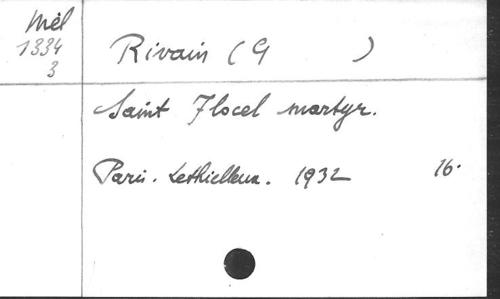 Mél
1334
3
Rivain (G )
Saint Flocel martyr.
Paris. Lethielleux. 1932 16.